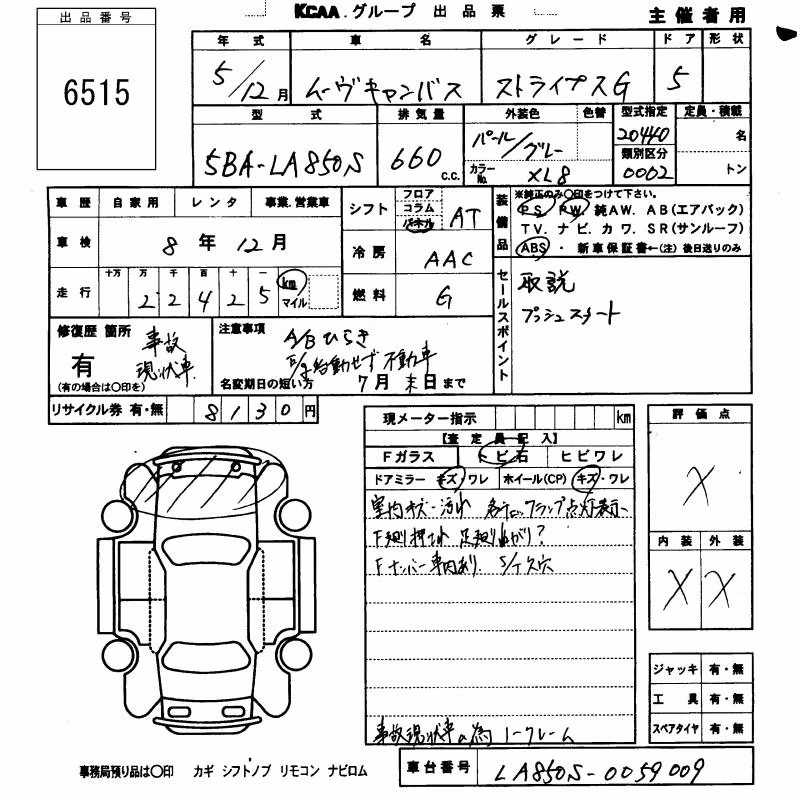 出品番号
6515
KCAA.グループ 出品票
主催者用
年式 車名 グレード ドア 形状
5/12月 ムーヴキャンバス ストライプスG 5
型式 排気量 外装色 色替 型式指定 定員・積載
5BA-LA850S 660 c.c. パール/グレー 20440 名
カラーNo. XL8 類別区分 0002 トン
車歴 自家用 レンタ 事業.営業車
車検 8年12月
走行 十万 万 千 百 十 一
22425 km マイル
シフト フロア コラム パネル AT
冷房 AAC
燃料 G
装備品
※純正のみ〇印をつけて下さい。
PS. PW. 純AW. AB(エアバック)
TV. ナビ. カワ. SR(サンルーフ)
ABS ・ 新車保証書←(注)後日送りのみ
セールスポイント
取説
プッシュスタート
修復歴 箇所
有 事故現状車
(有の場合は〇印を)
注意事項
A/Bひらき
E/g始動せず 不動車
名変期日の短い方 7月末日まで
リサイクル券 有・無 8130円
現メーター指示 km
【査定員記入】
Fガラス トビ石 ヒビワレ
ドアミラー キズ・ワレ ホイール(CP) キズ・ワレ
室内キズ・汚れ 点灯表示
F廻り押され 足廻り曲がり?
Fナンバー車内あり. S/T欠穴
事故現状車の為 ノークレーム
評価点
X
内装 外装
X X
ジャッキ 有・無
工具 有・無
スペアタイヤ 有・無
事務局預り品は〇印 カギ シフトノブ リモコン ナビロム
車台番号 LA850S-0059009